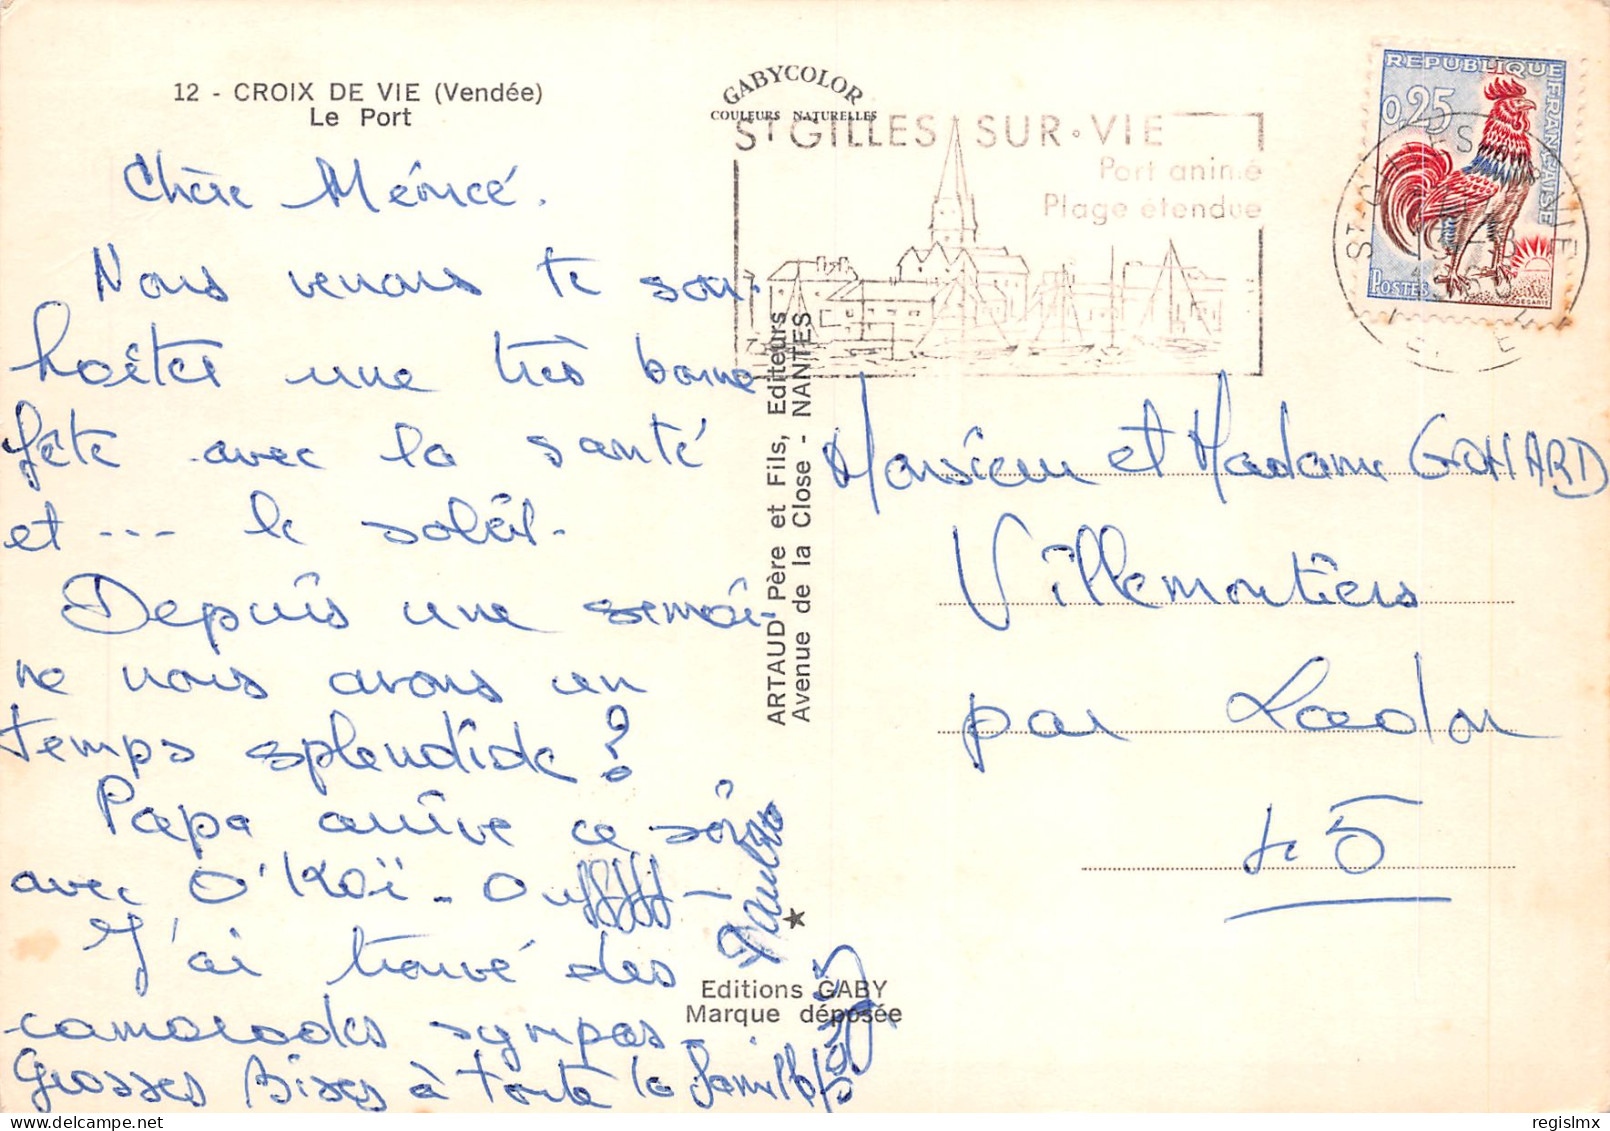 12 - CROIX DE VIE (Vendée)
Le Port
Chère Mémée.
Nous venons te sou-
haiter une très bonne
fête avec la santé
et --- le soleil.
Depuis une semai-
ne nous avons un
temps splendide?
Papa arrive ce soir
avec O'Kaï - Ouffffff -
J'ai trouvé des
camarades sympas -
Grosses Bises à toute la famille
GABYCOLOR
COULEURS NATURELLES
ARTAUD Père et Fils, Editeurs
Avenue de la Close - NANTES
Editions GABY
Marque déposée
ST GILLES SUR VIE
Port animé
Plage étendue
REPUBLIQUE FRANÇAISE
0,25
POSTES
Monsieur et Madame GOHARD
Villemontiers
par Ladon
45
regislmx